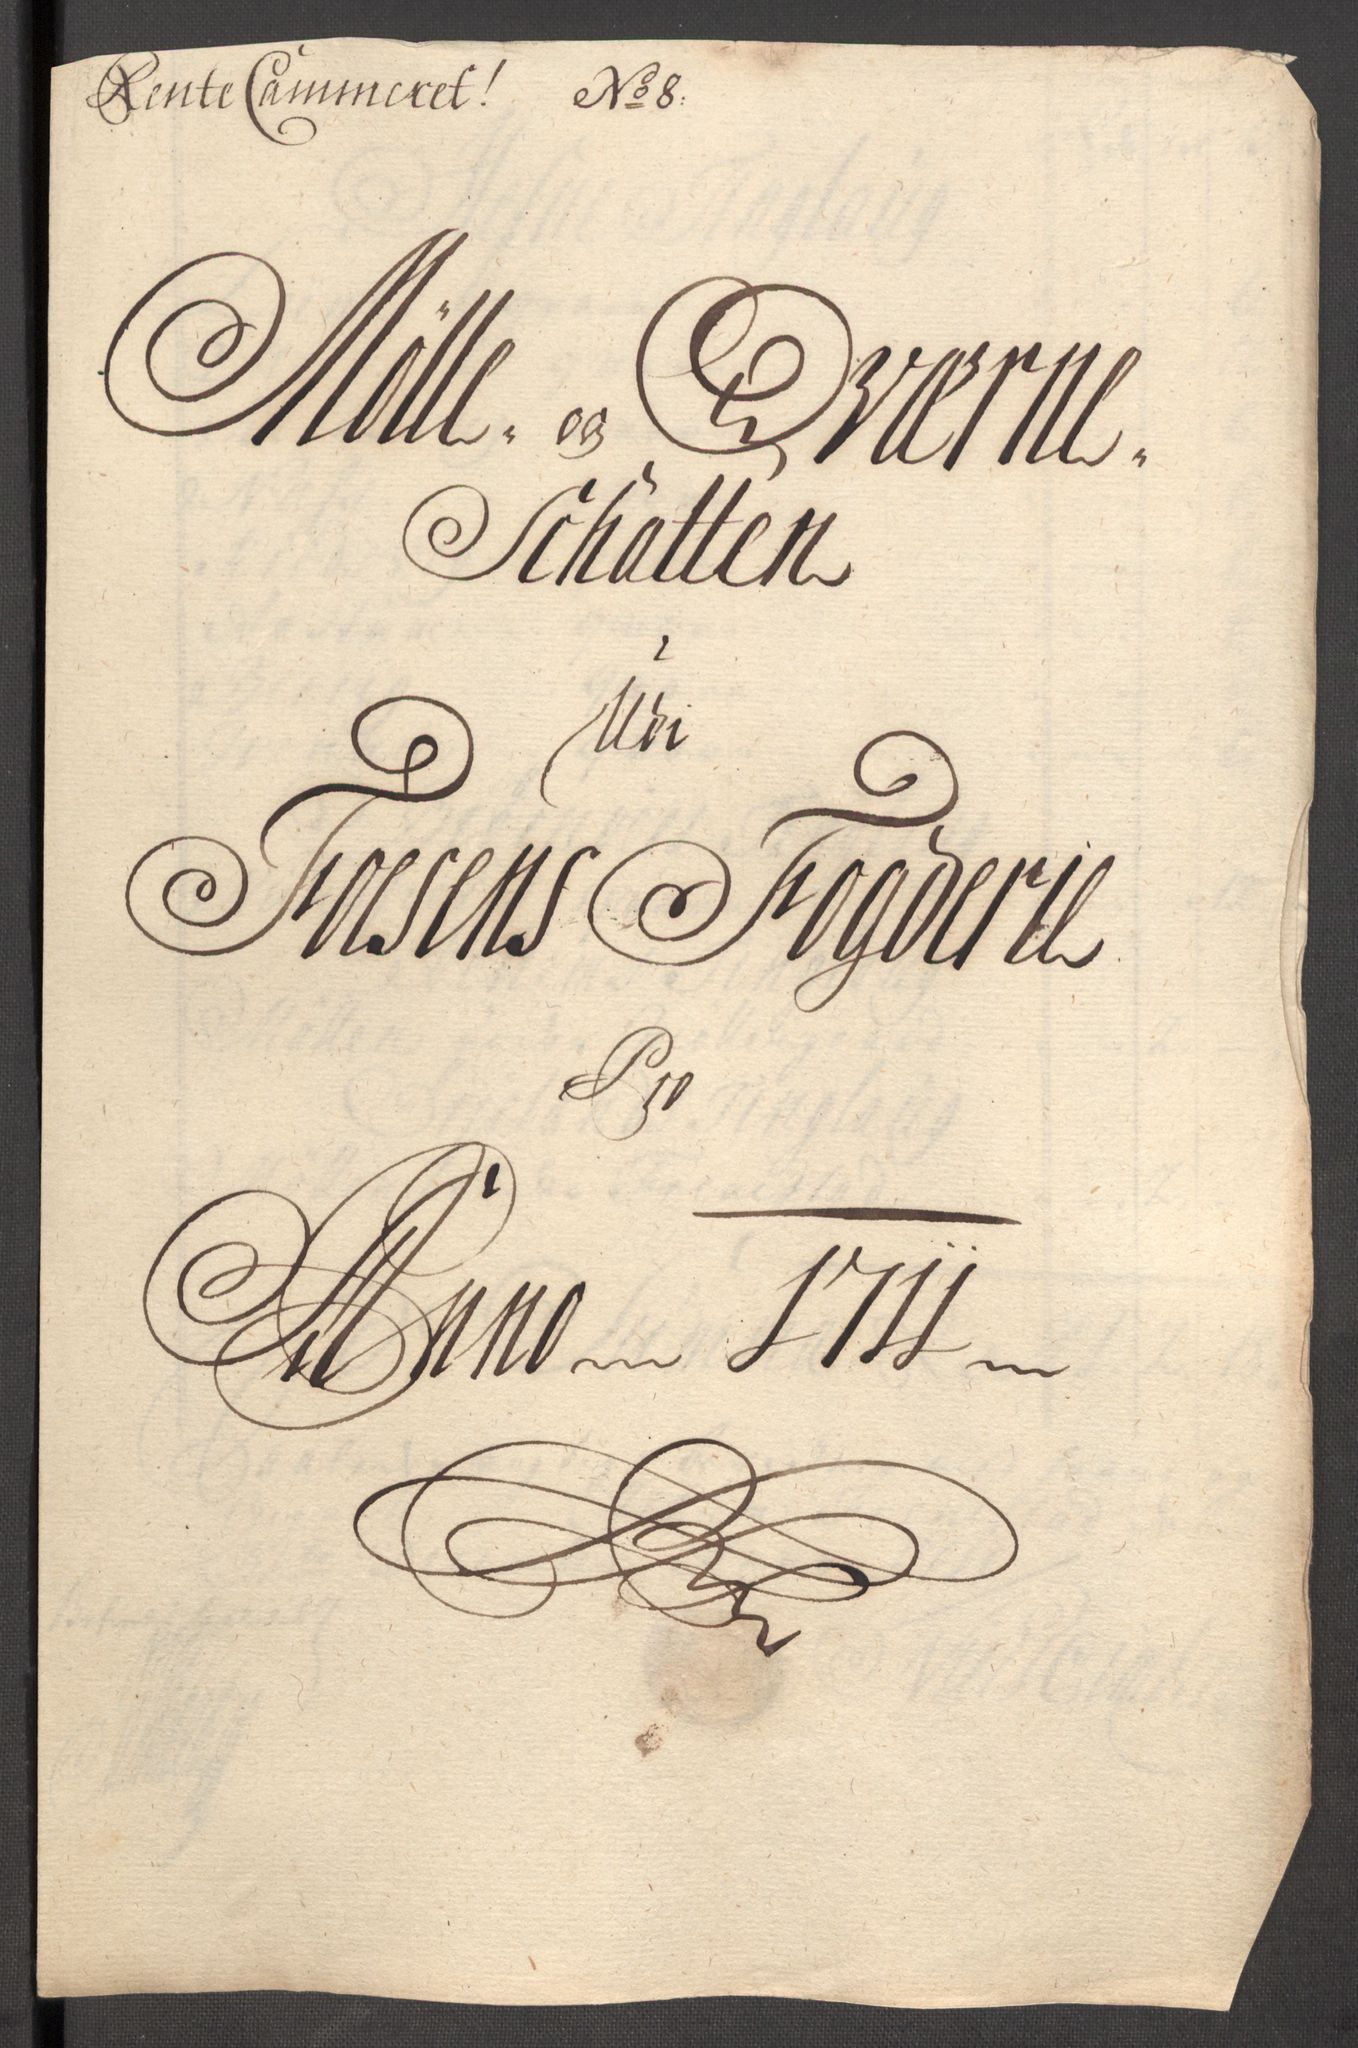 Rente Cammeret! No 8:
Mölle- og Qværne-
Schatten
Udi
Foesens Fogderie
Pro
Anno 1711